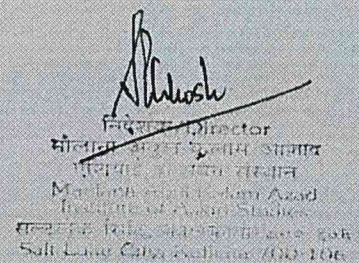 निदेशक/Director
मौलाना अबुल कलाम आज़ाद
एशियाई अध्ययन संस्थान
Maulana Abul Kalam Azad
Institute of Asian Studies
Salt Lake City, Kolkata 700 106